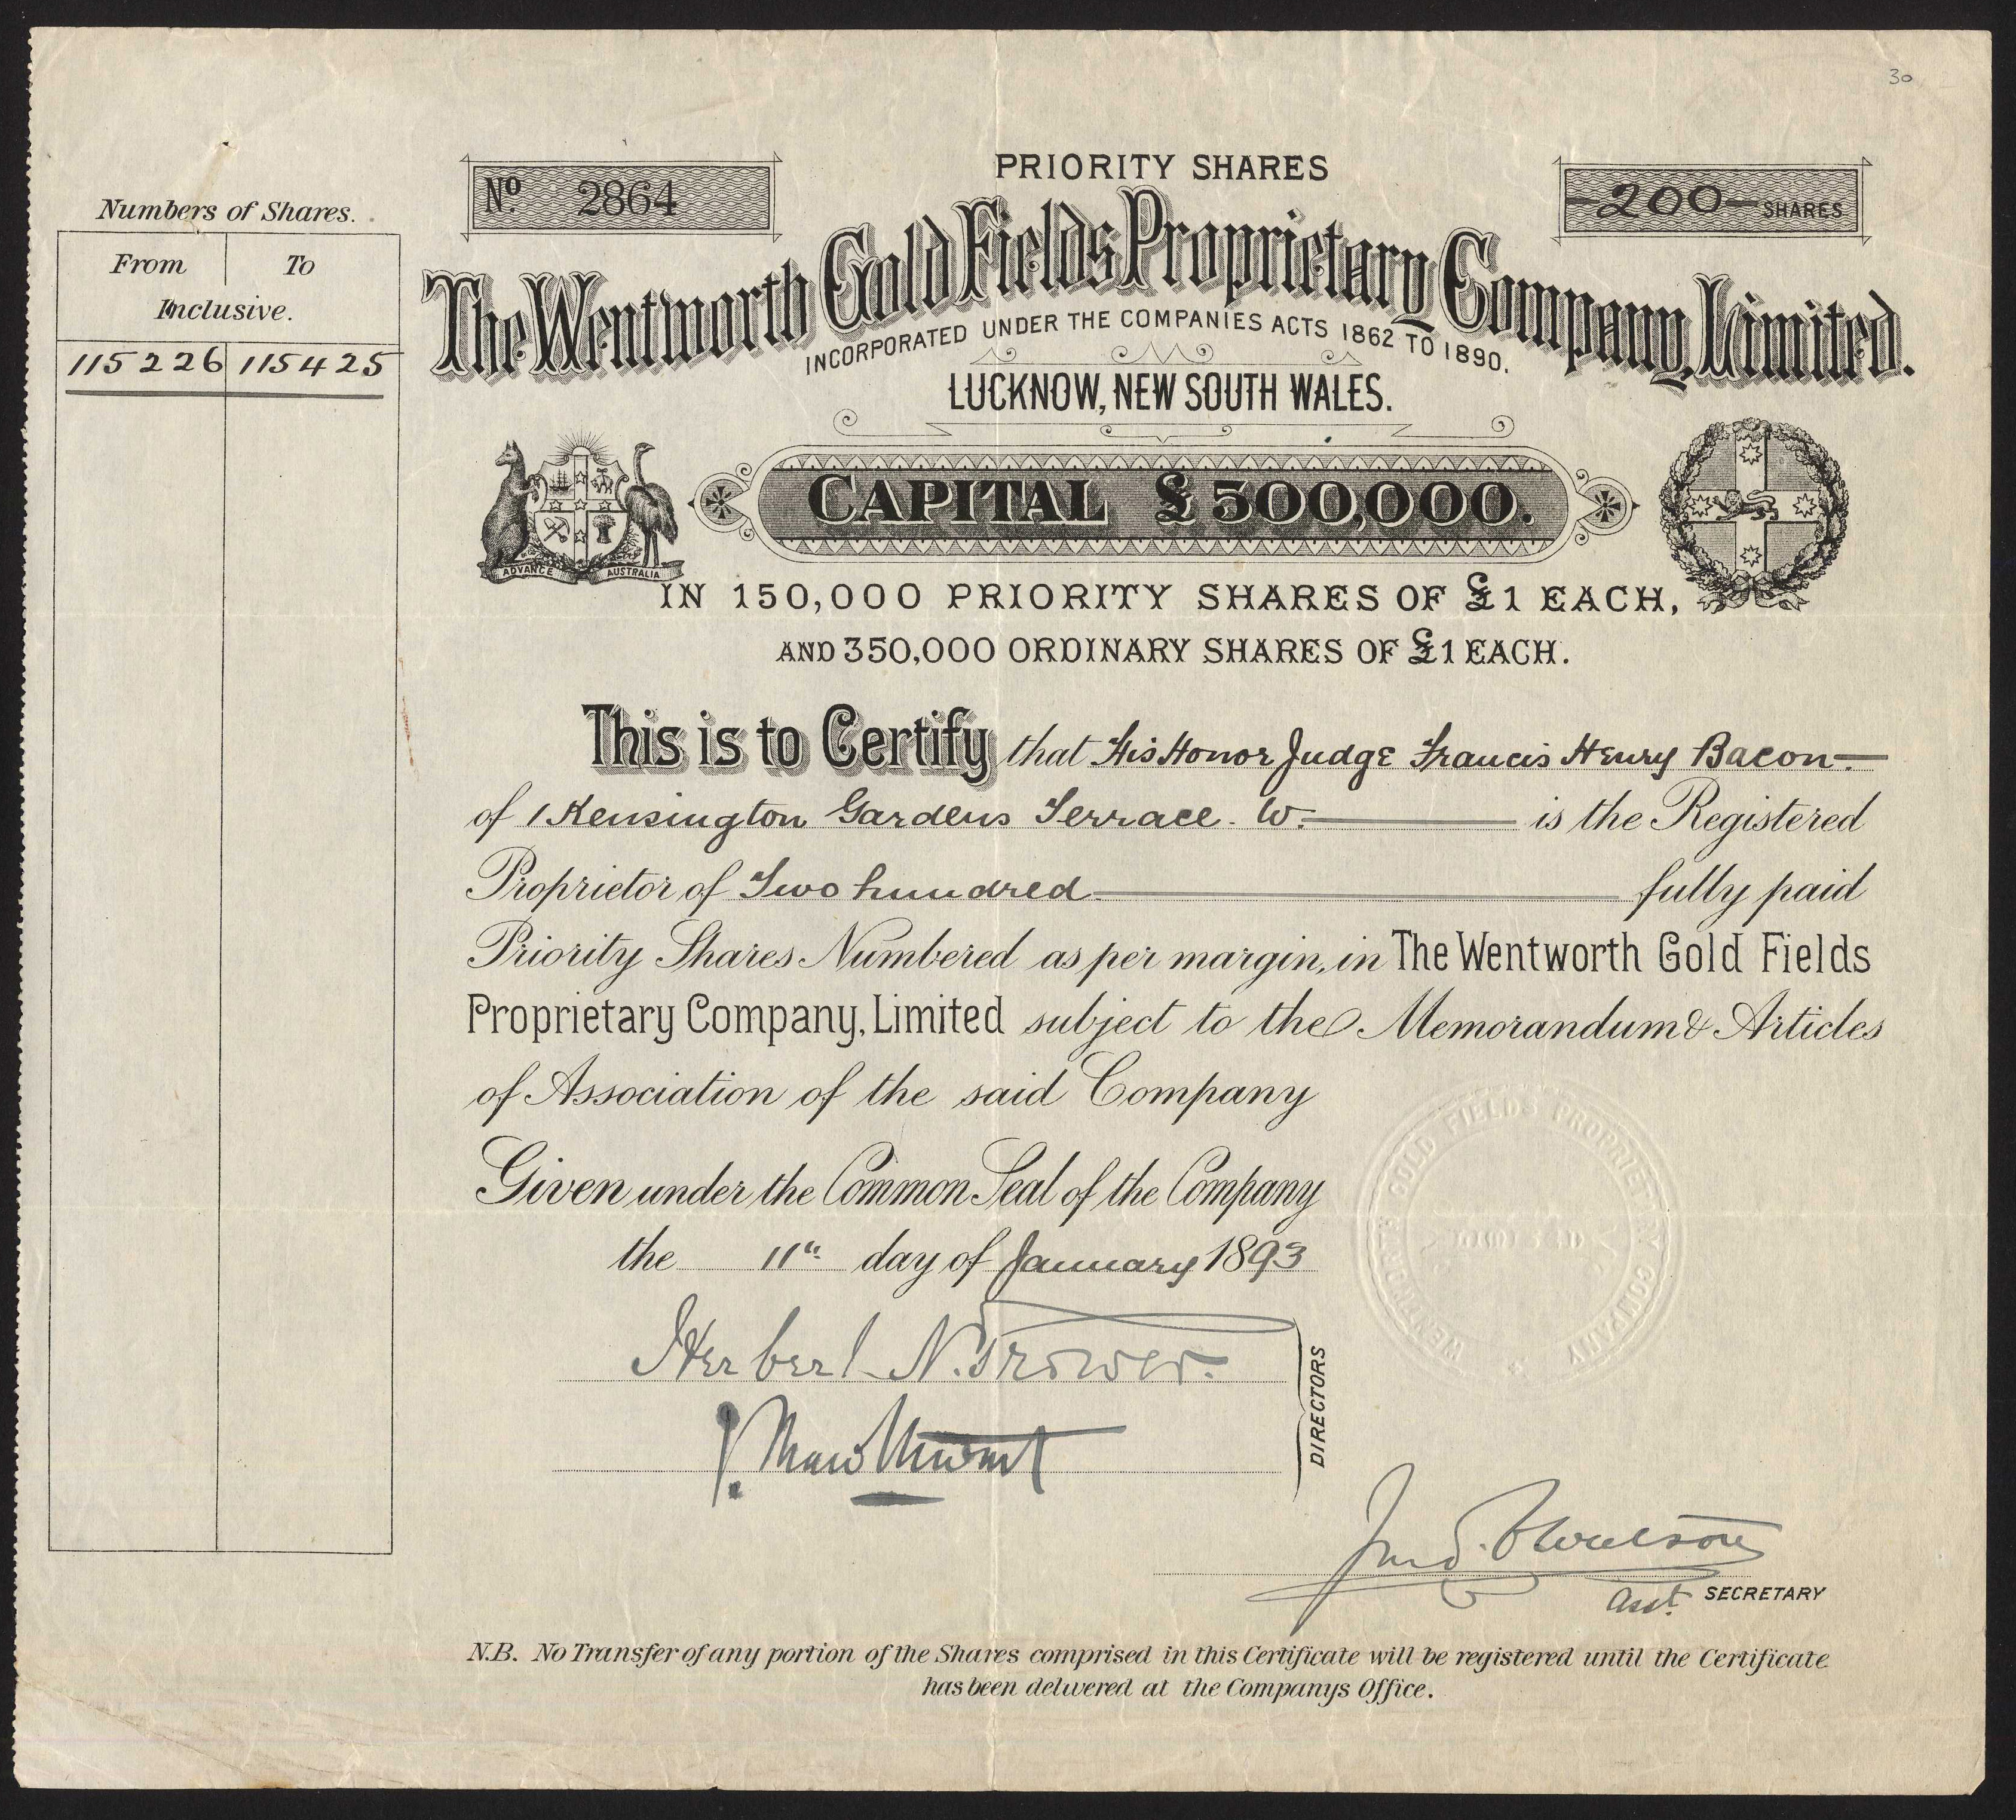 30
PRIORITY SHARES
No. 2864
200 SHARES
The Wentworth Gold Fields Proprietary Company, Limited.
INCORPORATED UNDER THE COMPANIES ACTS 1862 TO 1890.
LUCKNOW, NEW SOUTH WALES.
Numbers of Shares.
From To
Inclusive.
115226 115425
ADVANCE AUSTRALIA
CAPITAL £500,000.
IN 150,000 PRIORITY SHARES OF £1 EACH,
AND 350,000 ORDINARY SHARES OF £1 EACH.
This is to Certify that His Honor Judge Francis Henry Bacon
of 1 Kensington Gardens Terrace. W. is the Registered
Proprietor of Two hundred fully paid
Priority Shares Numbered as per margin, in The Wentworth Gold Fields
Proprietary Company, Limited subject to the Memorandum & Articles
of Association of the said Company
Given under the Common Seal of the Company
the 11th day of January 1893
WENTWORTH GOLD FIELDS PROPRIETARY COMPANY
LIMITED
Herbert N. Trower.
DIRECTORS
Asst. SECRETARY
N.B. No Transfer of any portion of the Shares comprised in this Certificate will be registered until the Certificate
has been delivered at the Companys Office.